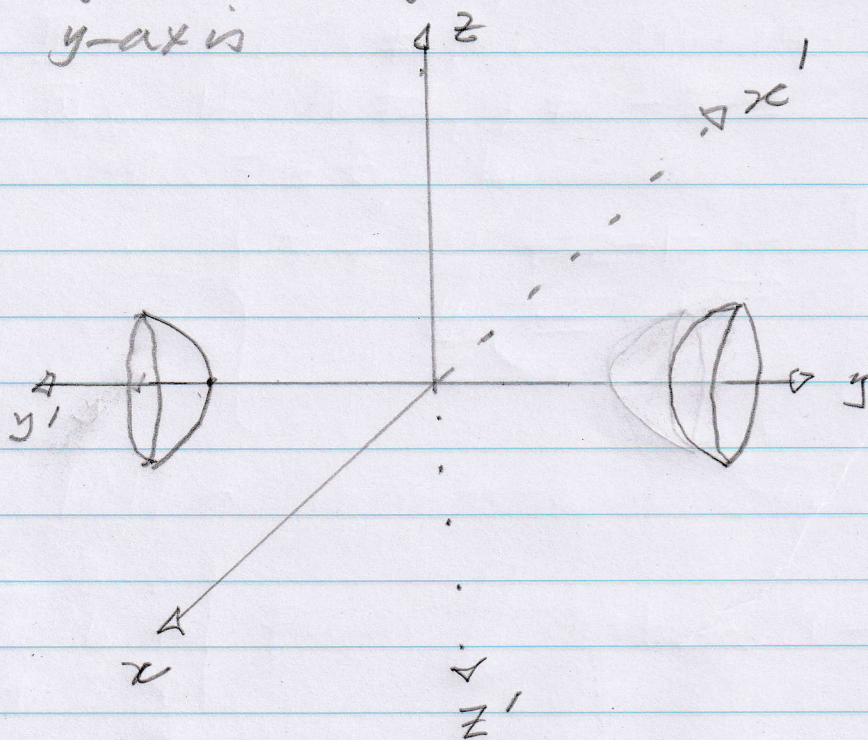 y-axis
z
x'
y'
y
x
z'